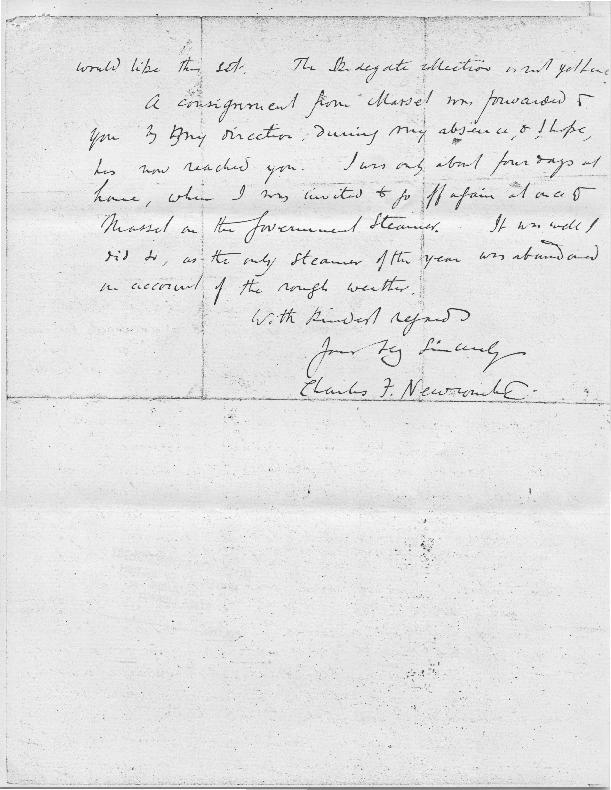 would like this set. The Skidegate collection is not yet here
A consignment from Masset was forwarded to
you by my direction, during my absence, & I hope,
has now reached you. I was only about four days at
home, when I was invited to go off again at once to
Masset on the Government Steamer. It was well I
did so, as the only steamer of the year was abandoned
on account of the rough weather.
With kindest regards
Yours very Sincerely
Charles F. Newcombe.